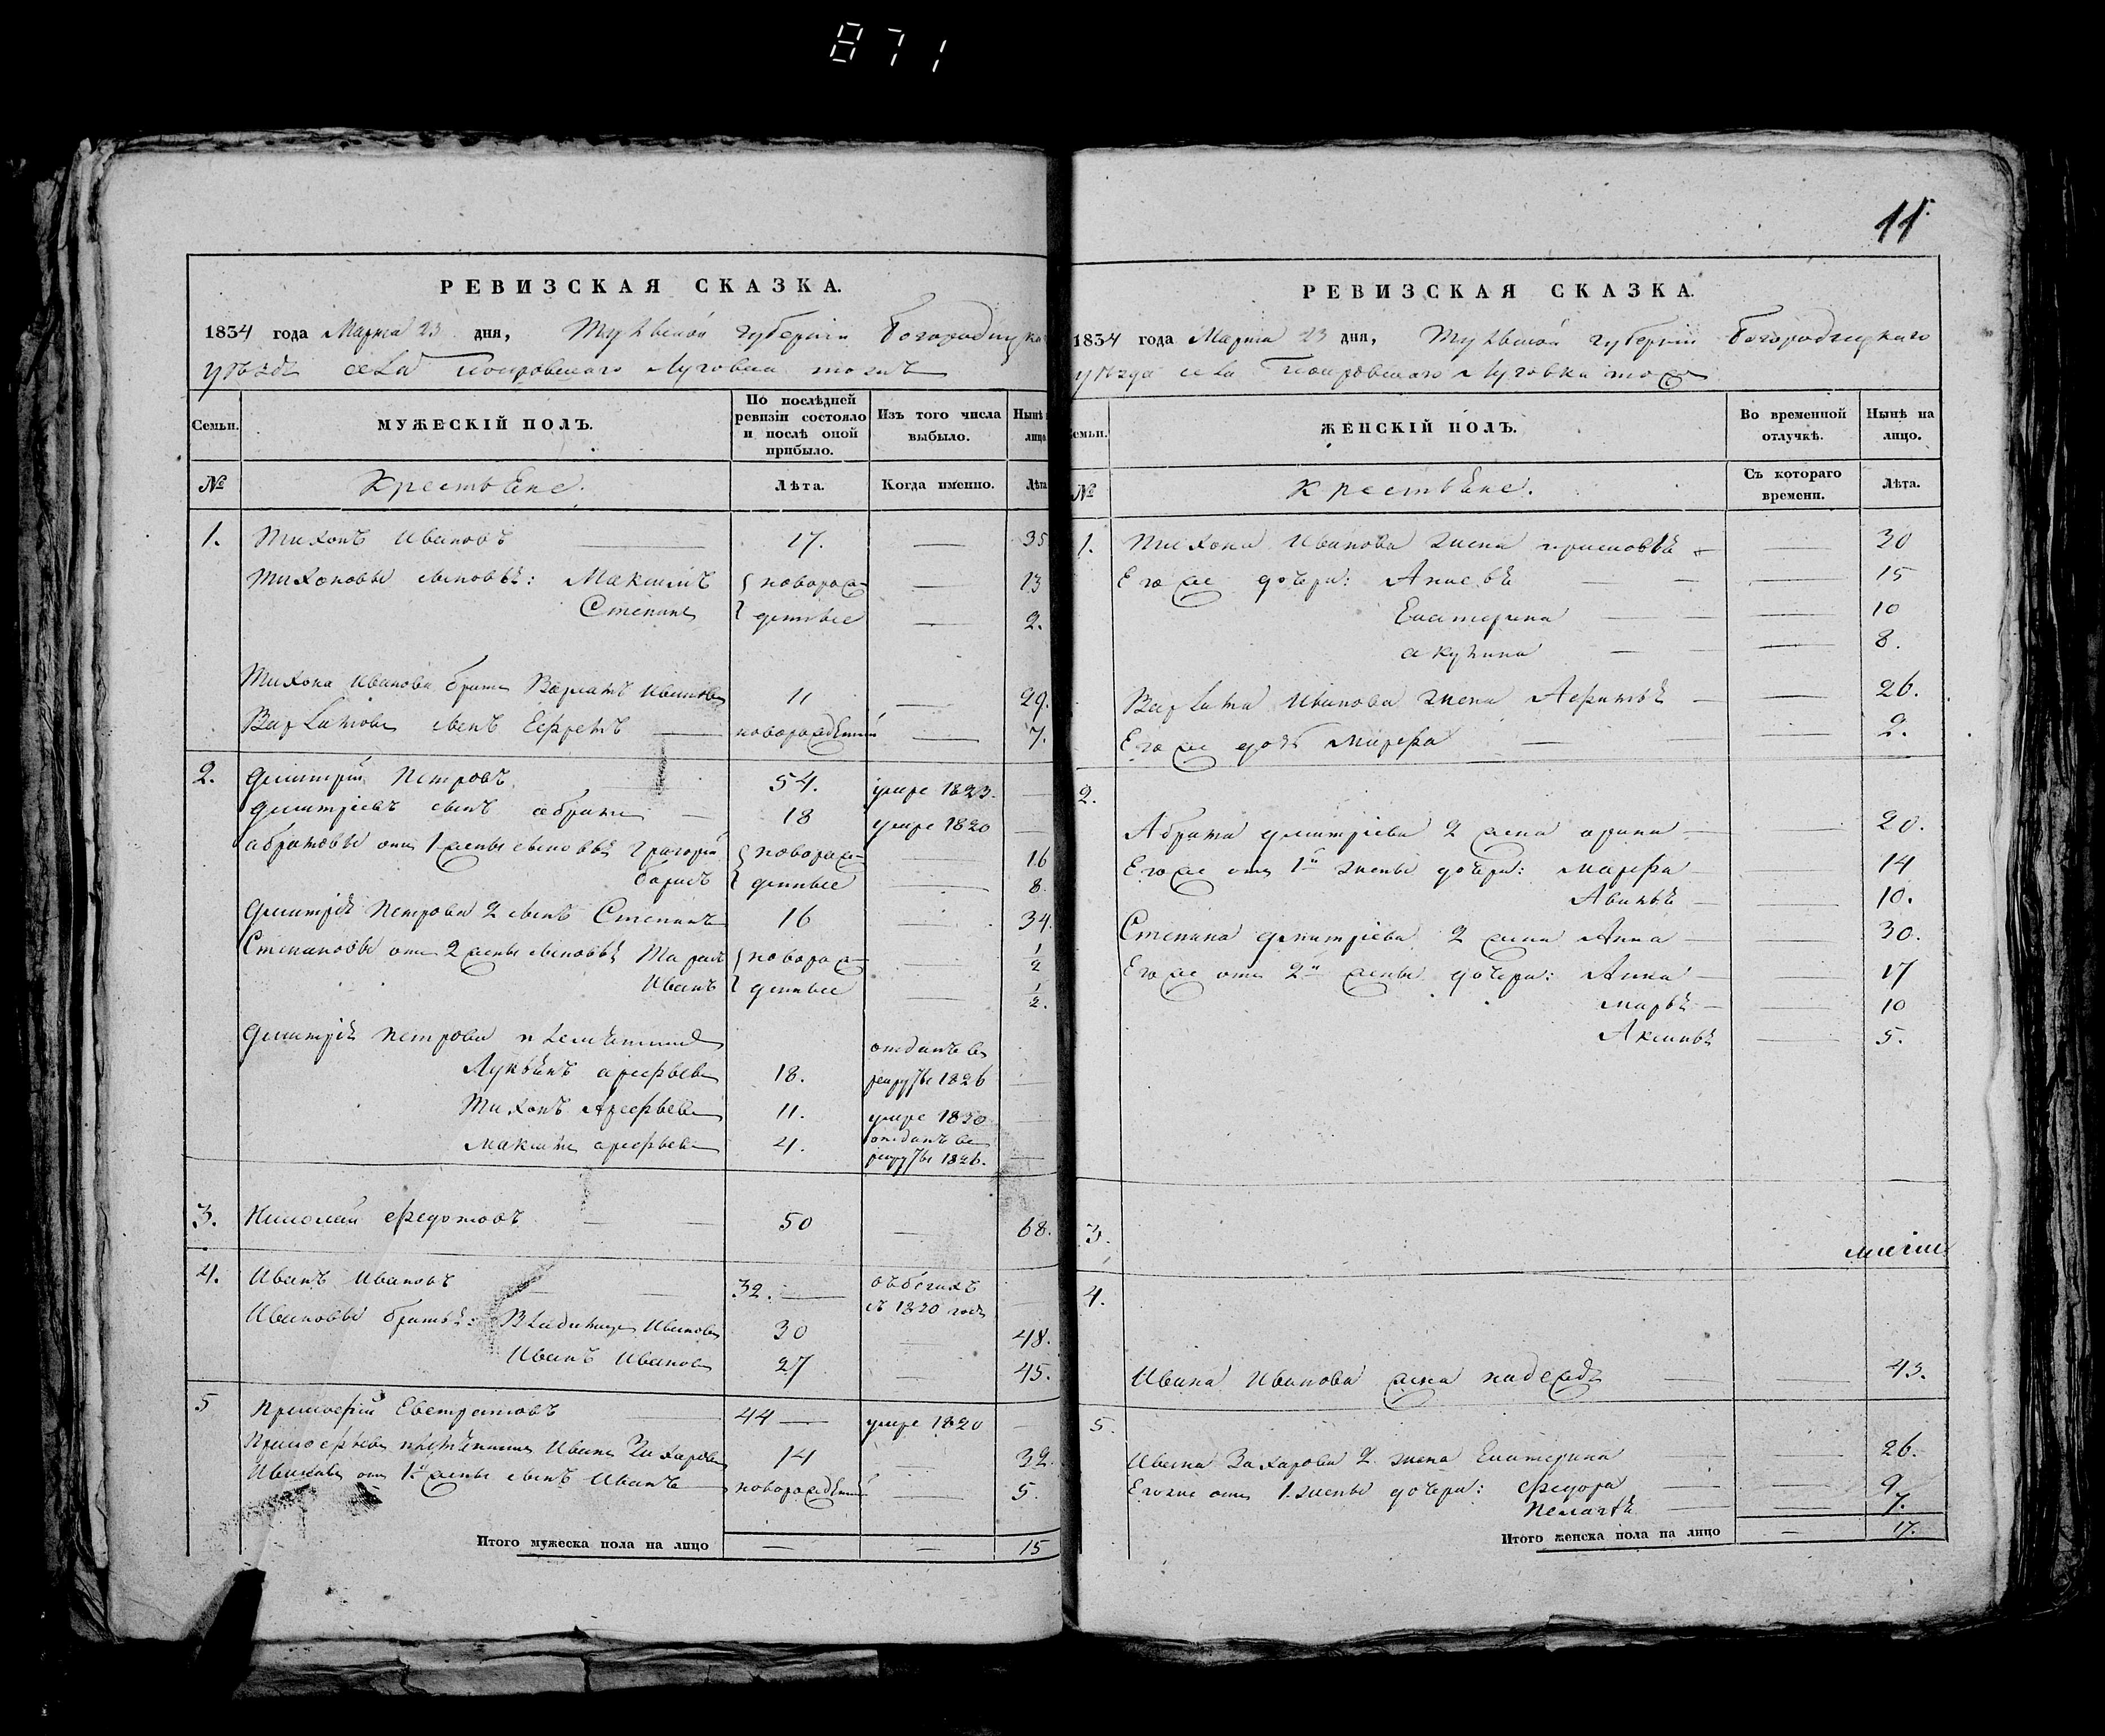 871
11
РЕВИЗСКАЯ СКАЗКА.
1834 года Марта 23 дня, Тульской губернии Богородицка
уезда села Покровского Луговка тожъ
Семьи.
МУЖЕСКІЙ ПОЛЪ.
По послѣдней ревизіи состояло и послѣ оной прибыло.
Изъ того числа выбыло.
Нынѣ лицо
№
Крестьяне.
Лѣта.
Когда именно.
Лѣта
1. Тихонъ Ивановъ — 17. — 35
Тихоновы сыновья: Максимъ новорож— — 13
Степанъ денные — 2.
Тихона Иванова братъ Варламъ Ивановъ 11 — 29.
Варламовъ сынъ Ефремъ — новорожденный — 7.
2. Дмитрій Петровъ 54. умре 1823. —
Дмитріевъ сынъ Абрамъ — 18 умре 1820 —
Абрамовы отъ 1 жены сыновья Григорій новорож— — 16
Борисъ денные — 8.
Дмитрія Петрова 2 сынъ Степанъ 16 — 34.
Степановы отъ 2 жены сыновья новорож— — 1/2
Иванъ денные — 1/2.
Дмитрія Петрова племянники
отданъ въ
Лукьянъ Арефьевъ 18. рекруты 1826 —
Тихонъ Арефьевъ 11. умре 1830 —
отданъ въ
Максимъ Арефьевъ 4. рекруты 1826. —
3. Николай Федотовъ — 50 — 68.
4. Иванъ Ивановъ — 32. — въ бегахъ
съ 1820 года —
Ивановы братья: Владимиръ Ивановъ 30 — 48.
Иванъ Ивановъ 27 — 45.
5 Прокофій Евстратовъ — 44 — умре 1820 —
Прокофьевъ племянникъ Иванъ Захаровъ 14 — 32.
Ивановъ отъ 1й жены сынъ Иванъ новорожденный — 5.
Итого мужеска пола на лицо — — 15
РЕВИЗСКАЯ СКАЗКА.
1834 года Марта 23 дня, Тульской губерніи Богородицкаго
уезда села Покровского Луговка тожъ
Семьи.
ЖЕНСКІЙ ПОЛЪ.
Во временной отлучкѣ.
Нынѣ на лицо.
№
Крестьяне.
Съ котораго времени.
Лѣта.
1. Тихона Иванова жена — 30
Его же дочери: Анисья — 15
Екатерина — 10
Акулина — 8.
Варлама Иванова жена Афимья — 26.
Его же дочь Марфа — 2.
2.
Абрама Дмитріева 2 жена Арина — 20.
Его же отъ 1й жены дочери: Марфа — 14
Авдотья — 10.
Степана Дмитріева 2 жена Анна — 30.
Его же отъ 2й жены дочери: Анна — 17
Марья — 10
Аксинья — 5.
3.
4.
Ивана Иванова жена Надежда — 43.
5.
Ивана Захарова 2 жена Екатерина — 26.
Его же отъ 1 жены дочери: Федора — 9
Пелагея — 7.
Итого женска пола на лицо — 17.